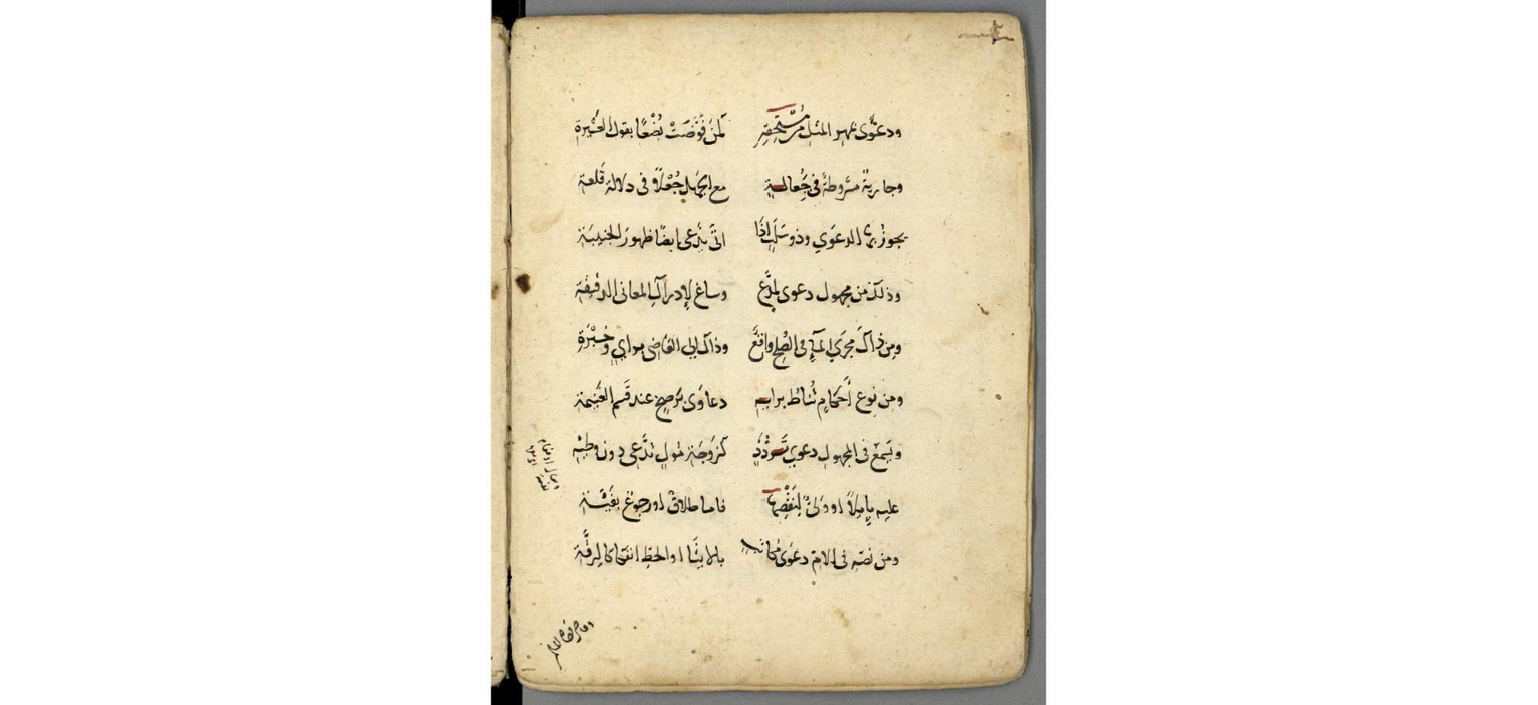 ودعوى بمهر المثل من مستحقه لمن فوضت بضعا بقول العشيرة
وجارية مشروطة في جعالة مع الجهل جعلا في دلالة قلعة
يجوز بها الدعوي وذو سلب اذا اتى يدعى ايضا ظهور الخبيبة
وذلك من مجهول دعوى لمدع وساغ لإدراك المعاني الدقيقة
ومن ذاك مجرى الماء في الصلح واقع وذاك الى القاضى براي وخبرة
ومن نوع أحكام تناط برايه دعاوى برضخ عند قسم الغنيمة
ويسمع في المجهول دعوي تردد كزوجة مول تدعى دون وطيه
عليه بإيلاء او ولى لنقضها فاما طلاق او رجوع بفيئة
ومن نصه في الام دعوى مكاتب بالايتاء او الحط انتحاكا لرقة